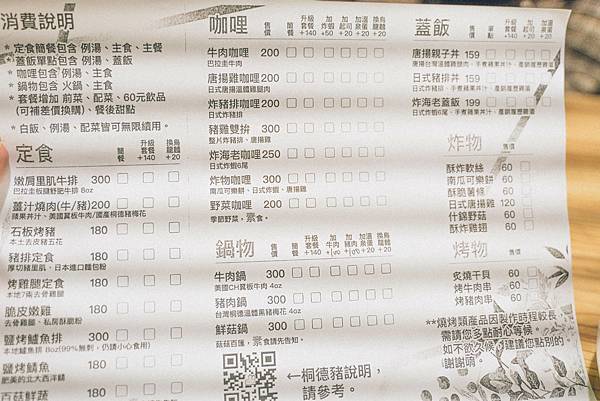 消費說明
* 定食簡餐包含 例湯、主食、主餐
* 蓋飯單點包含 例湯、蓋飯
* 咖哩包含 例湯、主食
* 鍋物包含 火鍋、主食
* 套餐增加 前菜、配菜、60元飲品
(可補差價換購)、餐後甜點
* 白飯、例湯、配菜皆可無限續用。
定食 簡餐 升級套餐+140 換烏龍麵+20
嫩肩里肌牛排 300
巴拉圭板腱野肥牛排 8oz
薑汁燒肉(牛/豬) 200
蘋果丼汁、美國翼板牛肉/國產桐德豬梅花
石板烤豬 180
本土去皮豬五花
豬排定食 180
厚切豬里肌、日本進口麵包粉
烤雞腿定食 180
本地7兩去骨雞腿
脆皮嫩雞 180
去骨雞腿、私房酥脆粉
鹽烤鱸魚排 300
本地鱸魚排 8oz(99%無刺，仍請小心食用)
鹽烤鯖魚 180
肥美的北大西洋鯖
百菇鮮蔬 180
咖哩 售價 升級套餐+140 加起司+50 加溫泉蛋+20 換烏龍麵+20
牛肉咖哩 200
巴拉圭牛肉
唐揚雞咖哩 200
日式唐揚溫體雞腿肉
炸豬排咖哩 200
日式炸豬排
豬雞雙拚 300
整片炸豬排、唐揚雞
炸海老咖哩 250
日式炸蝦6尾
炸物咖哩 300
南瓜可樂餅、日式炸蝦、唐揚雞
野菜咖哩 200
季節野菜，素食。
鍋物 售價 簡餐 升級套餐+140
牛肉鍋 300
美國CH翼板牛肉 4oz
豬肉鍋 300
台灣桐德溫體黑豬梅花 4oz
鮮菇鍋 300
菇菇百匯，素食請先告知。
←桐德豬說明，
請參考。
蓋飯 售價 單點
唐揚親子丼 159
日式豬排丼 159
炸海老蓋飯 199
炸物 售價
酥炸軟絲 60
南瓜可樂餅 60
酥脆薯條 60
日式唐揚雞 120
什錦野菇 60
酥炸雞翅 60
烤物 售價
炙燒干貝 60
烤牛肉串 60
烤豬肉串 60
**燒烤類產品因製作時程較長
需請您多點耐心等候。
如不欲久候，建議您點別的
謝謝唷。